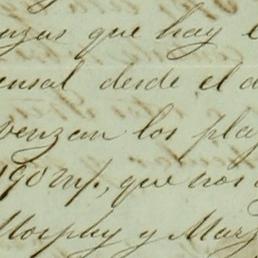 nzas que hay e
ensal desde el d
venzan los pla
que nos
Morphy y Marz